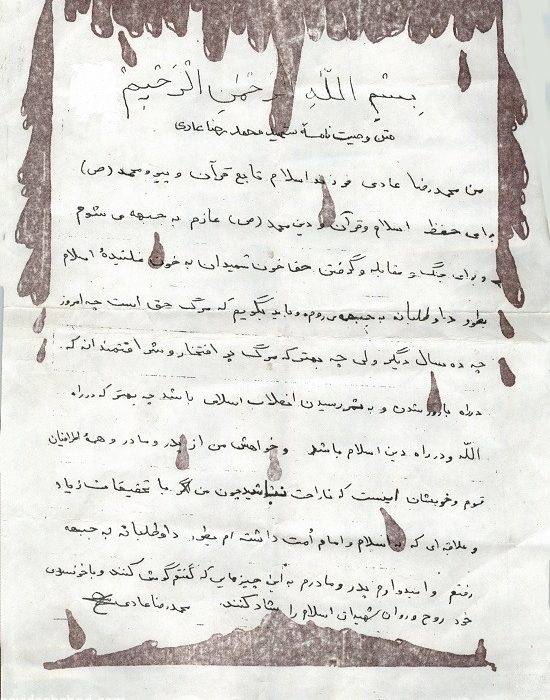 بِسْمِ اللّهِ الرَّحْمٰنِ الرَّحیِمْ
متن وصیت نامهٔ شهید محمد رضا عادی
من محمد رضا عادی فرزند اسلام تابع قرآن و پیرو محمد (ص)
برای حفظ اسلام و قرآن و دین محمد (ص) عازم به جبهه می شوم
و برای جنگ و مقابله و گرفتن حق خون شهیدان به خون غلتیدهٔ اسلام
بطور داوطلبانه به جبهه می روم و باید بگویم که مرگ حق است چه امروز
چه ده سال دیگر ولی چه بهتر که مرگ پر افتخار و شرافتمندانه که
در راه بارور شدن و به ثمر رسیدن انقلاب اسلامی باشد چه بهتر که در راه
اللّه و در راه دین اسلام باشد و خواهش من از پدر و مادر و همهٔ اطرافیان
قوم و خویشان اینست که ناراحت نباشید چون من اگر با تحقیقات زیاد
و علاقه ای که به اسلام و امام اُمت داشته ام بطور داوطلبانه به جبهه
رفتم و امیدوارم پدر و مادرم به این چیزهایی که گفتم گوش کنند و با خونسردی
خود روح و روان شهیدان اسلام را شاد کنند. محمد رضا عادی